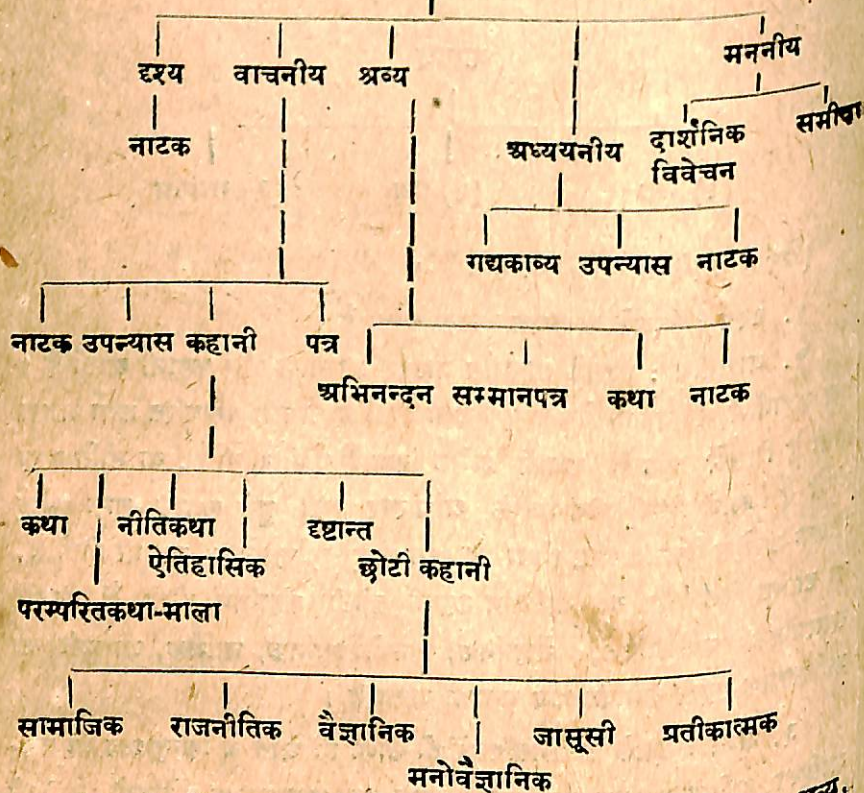 दृश्य वाचनीय श्रव्य मननीय
नाटक अध्ययनीय दार्शनिक समीक्षा
विवेचन
गद्यकाव्य उपन्यास नाटक
नाटक उपन्यास कहानी पत्र
अभिनन्दन सम्मानपत्र कथा नाटक
कथा नीतिकथा दृष्टान्त
ऐतिहासिक छोटी कहानी
परम्परितकथा-माला
सामाजिक राजनीतिक वैज्ञानिक जासूसी प्रतीकात्मक
मनोवैज्ञानिक